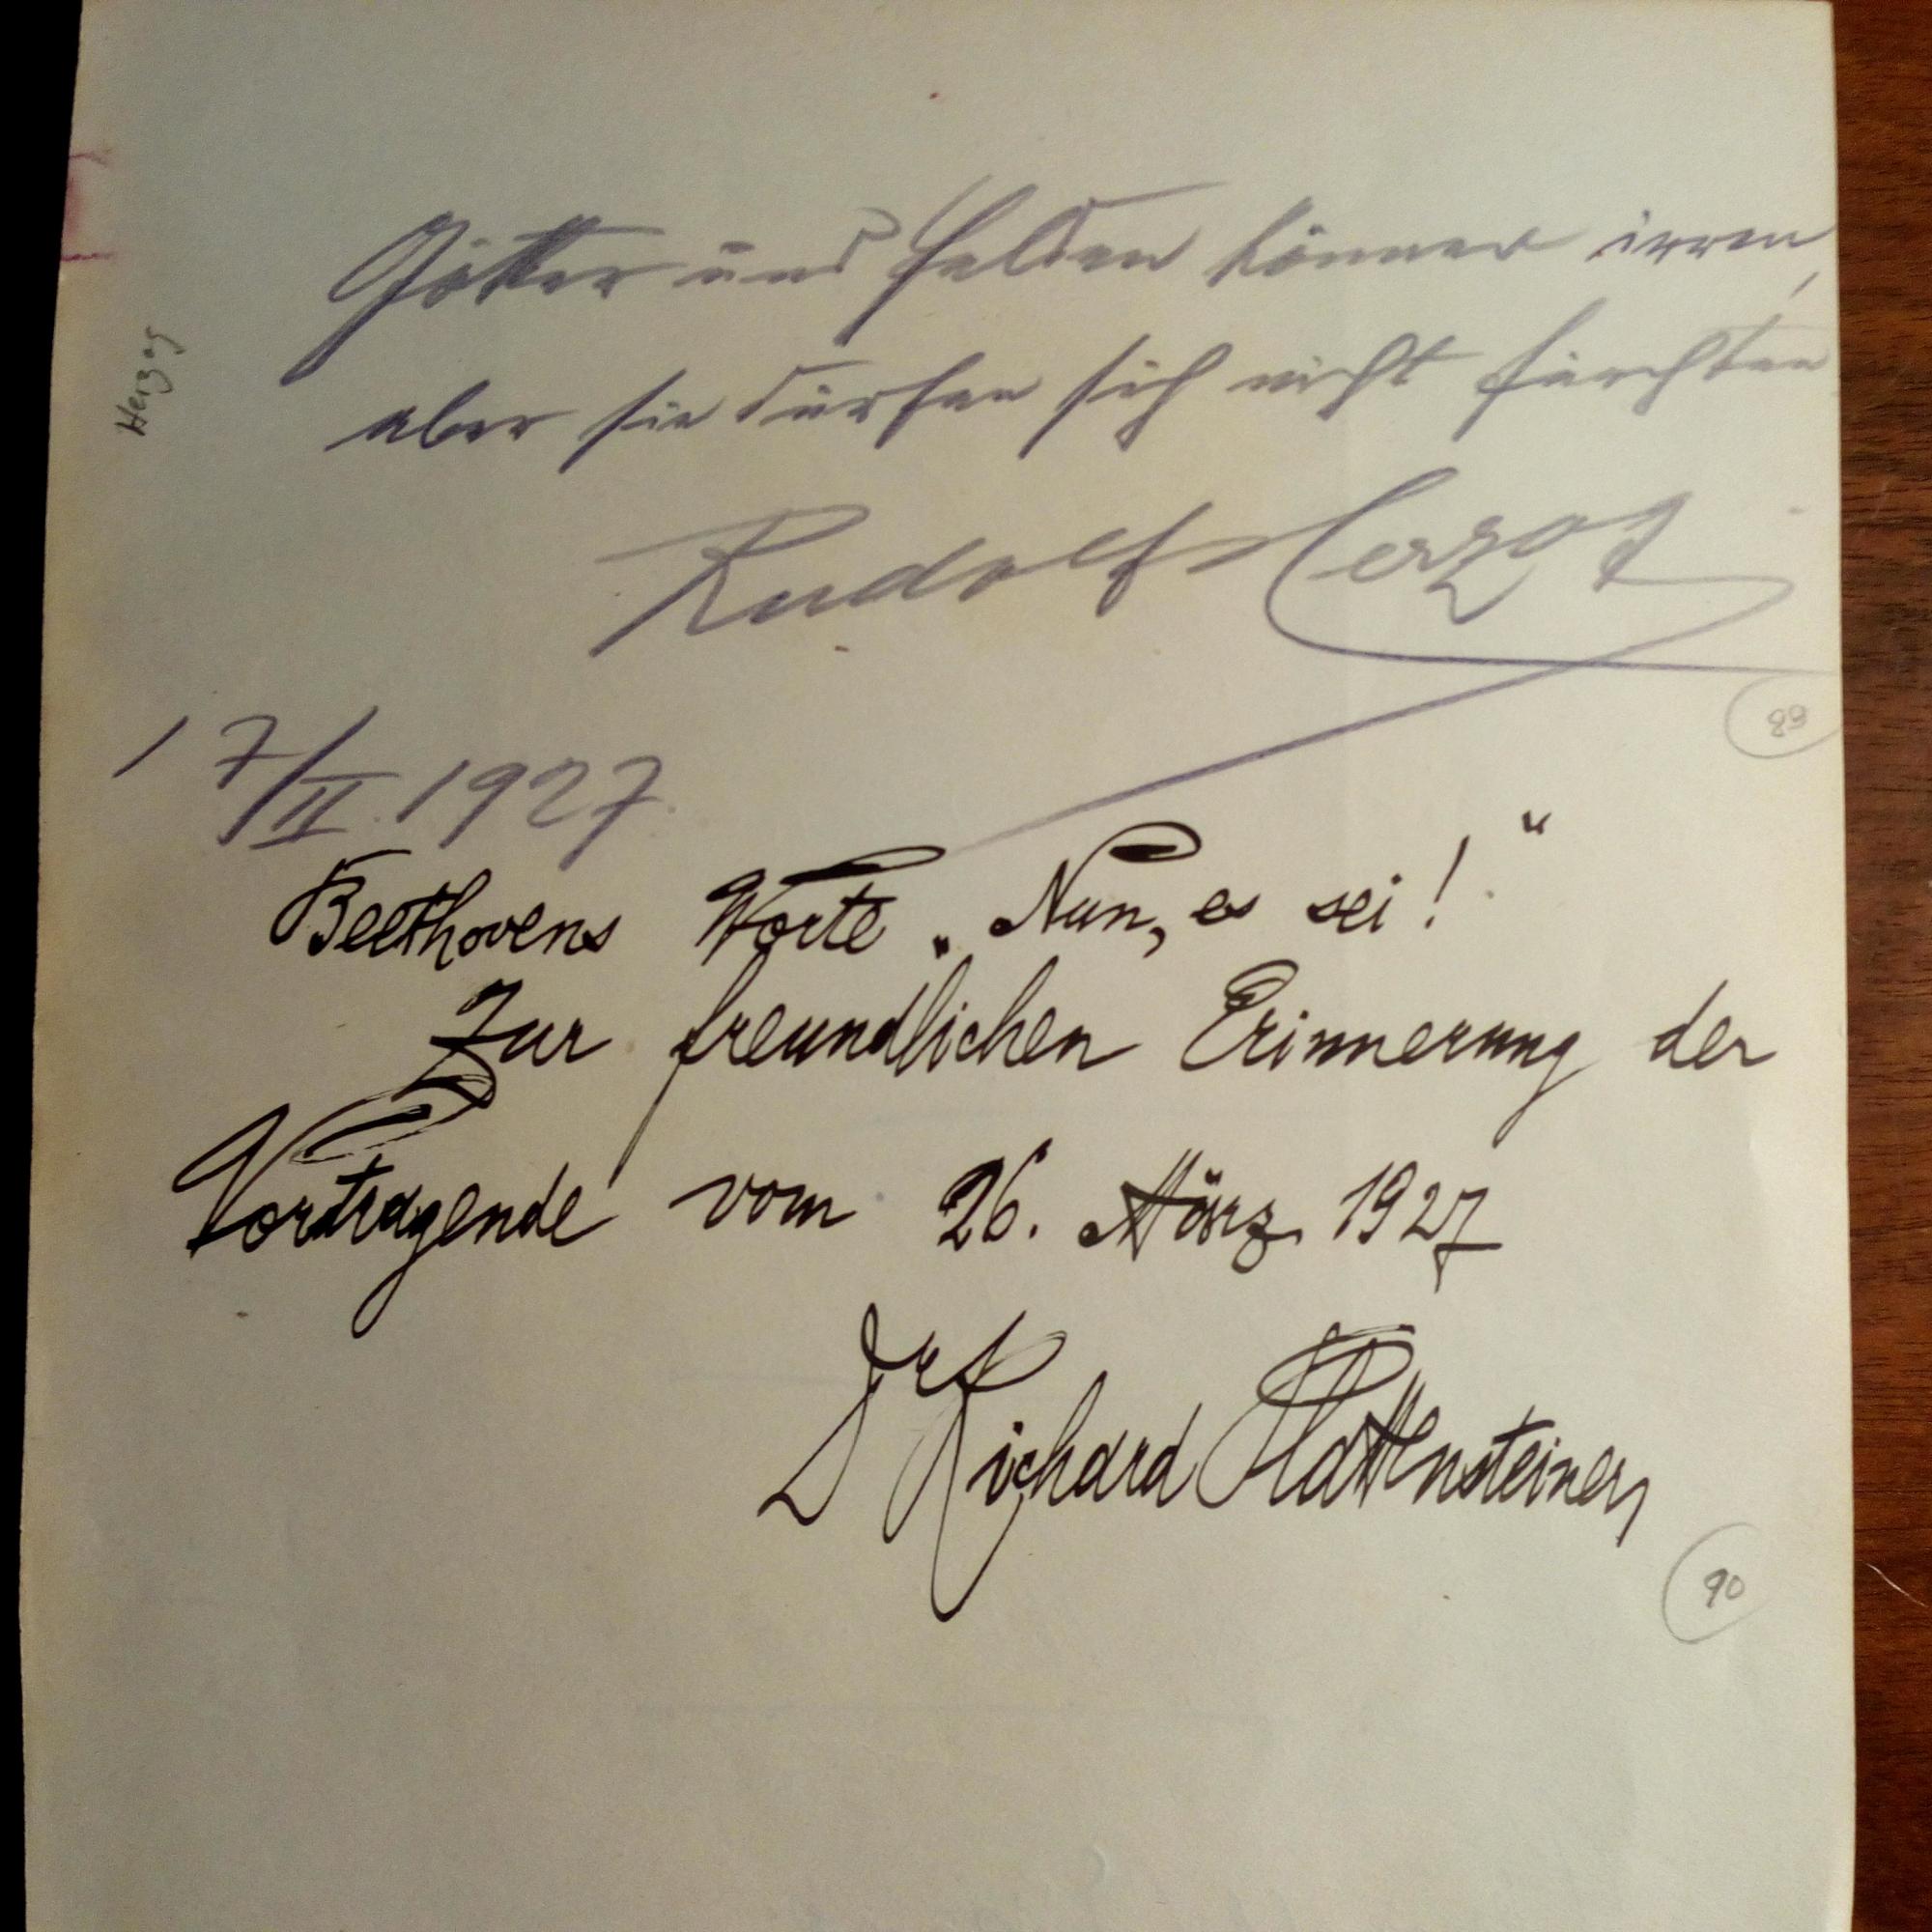 Götter und Helden können irren,
aber sie dürfen sich nicht fürchten
Rudolf Herzog
Herzog
89
17/II. 1927.
Beethovens Worte „Nun, es sei!“
Zur freundlichen Erinnerung der
Vortragende vom 26. März 1927
Dr Richard Plattensteiner
90